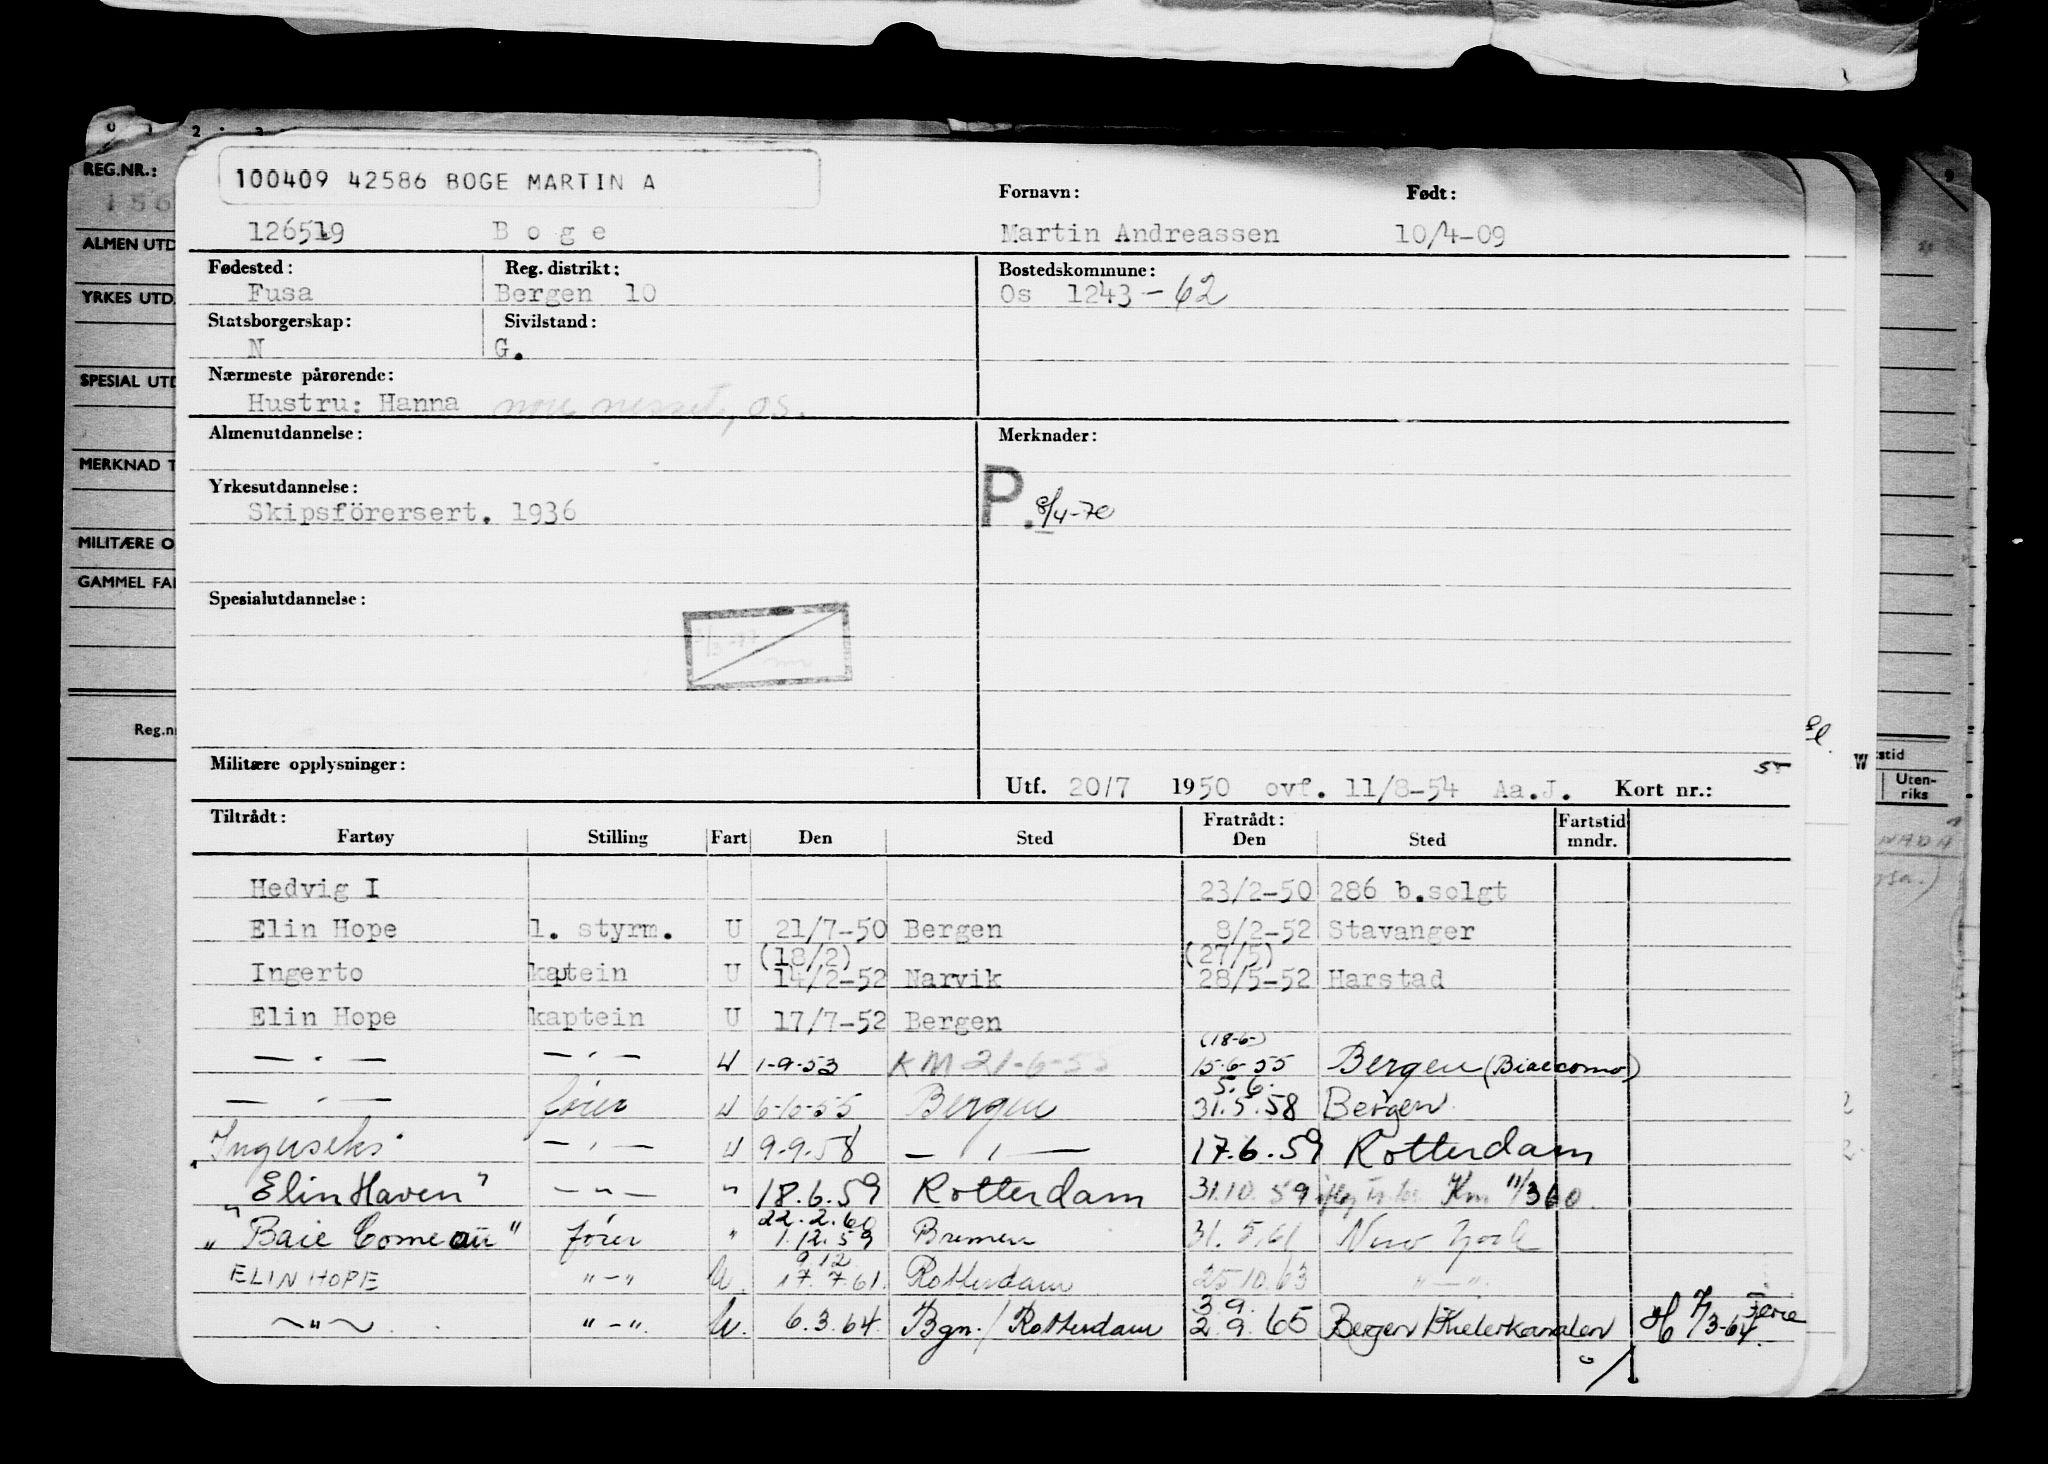 0 1 2 3
REG.NR.:
ALMEN UTD
YRKES UTD.
SPESIAL UTD
MERKNAD T
MILITÆRE O
GAMMEL FAR
Reg.nr
100409 42586 BOGE MARTIN A
Fornavn: Født:
126519 Boge Martin Andreassen 10/4-09
Fødested: Reg. distrikt: Bostedskommune:
Fusa Bergen 10 Os 1243-62
Statsborgerskap: Sivilstand:
N G.
Nærmeste pårørende:
Hustru: Hanna os.
Almenutdannelse: Merknader:
Yrkesutdannelse:
Skipsförersert. 1936 P. 8/4-70
Spesialutdannelse:
Militære opplysninger:
Utf. 20/7 1950 ovf. 11/8-54 Aa.J. Kort nr.:
Tiltrådt: Fratrådt: Fartstid
Fartøy Stilling Fart Den Sted Den Sted mndr.
Hedvig I 23/2-50 286 b.solgt
Elin Hope 1. styrm. U 21/7-50 Bergen 8/2-52 Stavanger
(18/2) (27/5)
Ingerto kaptein U 14/2-52 Narvik 28/5-52 Harstad
Elin Hope kaptein U 17/7-52 Bergen
(18-6-)
— . — — . — U 1-9-53 KM-21-6-55 15-6-55 Bergen
5.6.
— . — fører U 6-10-55 Bergen 31.5.58 Bergen
— . — U 9-9-58 — . — 17.6.59 Rotterdam
"Elin Haven" — „ — " 18.6.59 Rotterdam 31.10.59 Km 11/3 60.
22.2.60
"Baie Comeau" fører " 1.12.59 Bremen 31.5.61 New York
9.12
ELIN HOPE "—" U. 17.7.61. Rotterdam 25.10.63 "—".
3 9.
~"~ "—". U. 6.3.64. Bgn./Rotterdam 2.9.65 Bergen/Kielerkanalen 7/3-64. Ferie